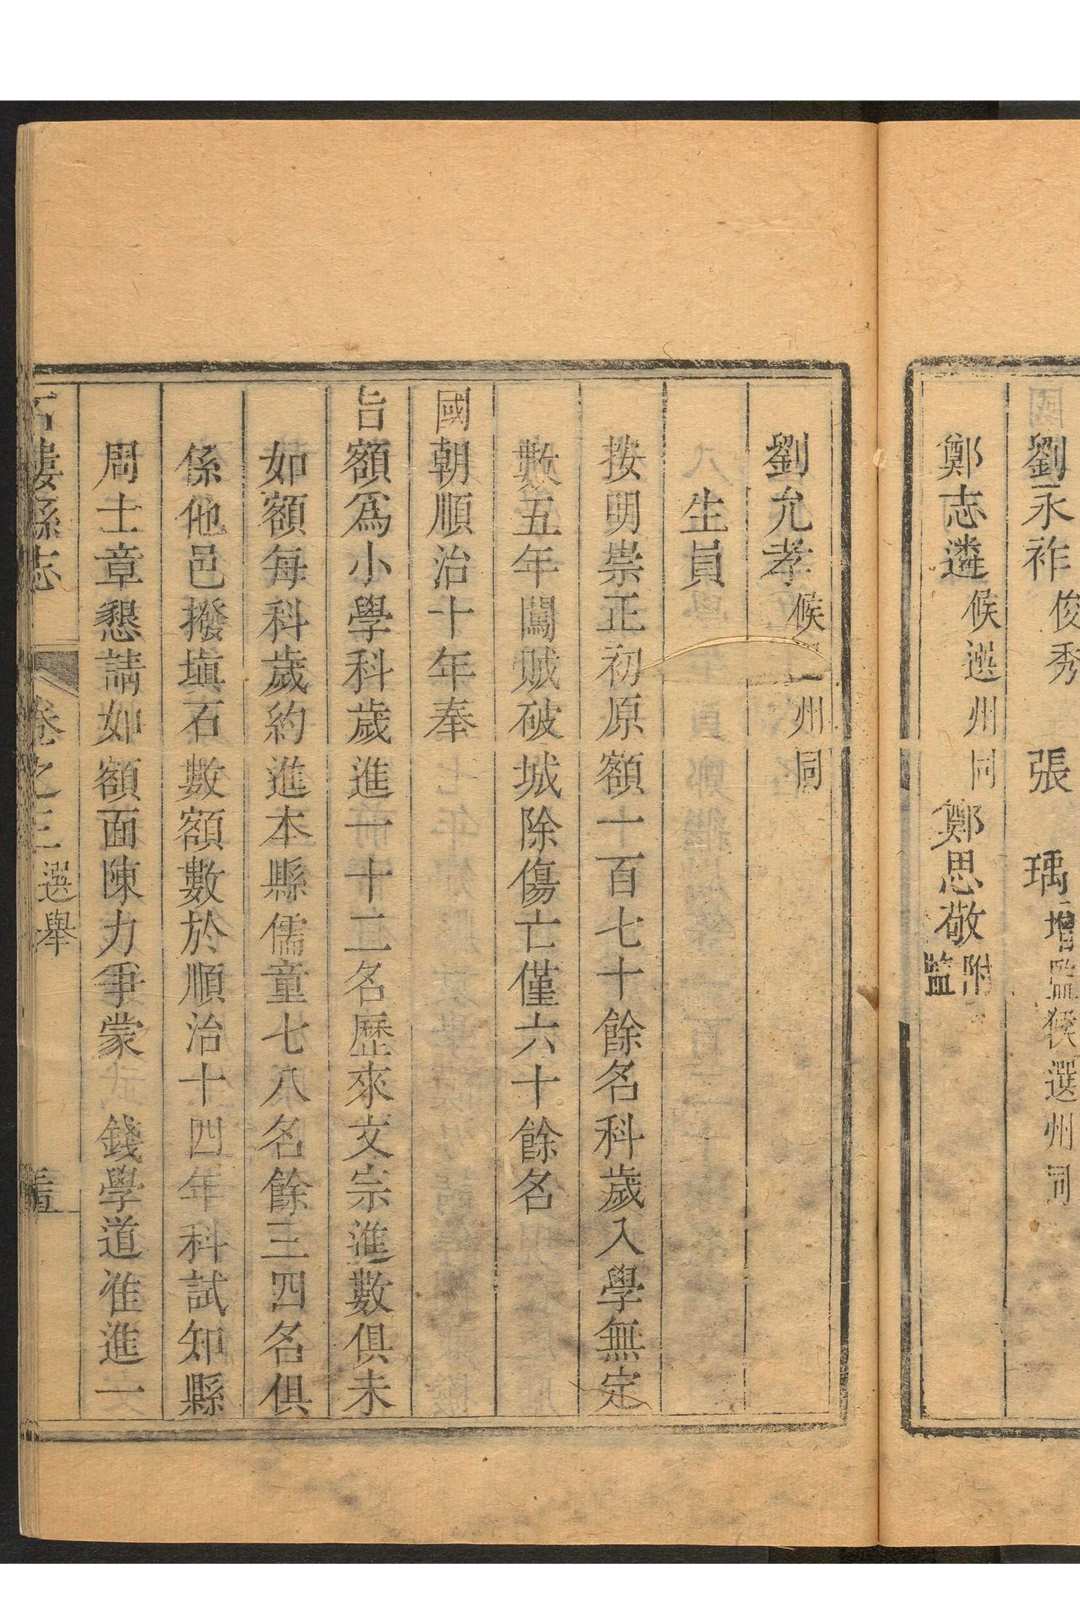 劉永祚俊秀 張 瑀增監候選州同
鄭志遴候選州同 鄭思敬附監
劉允孝候選州同
生員
按明崇正初原額一百七十餘名科歲入學無定
數五年闖賊破城除傷亡僅六十餘名
國朝順治十年奉
旨額爲小學科歲進一十二名歷來文宗進數俱未
如額每科歲約進本縣儒童七八名餘三四名俱
係他邑撥塡石數額數於順治十四年科試知縣
周士章懇請如額面陳力爭蒙 錢學道准進一
石婁縣志 卷之三 選舉